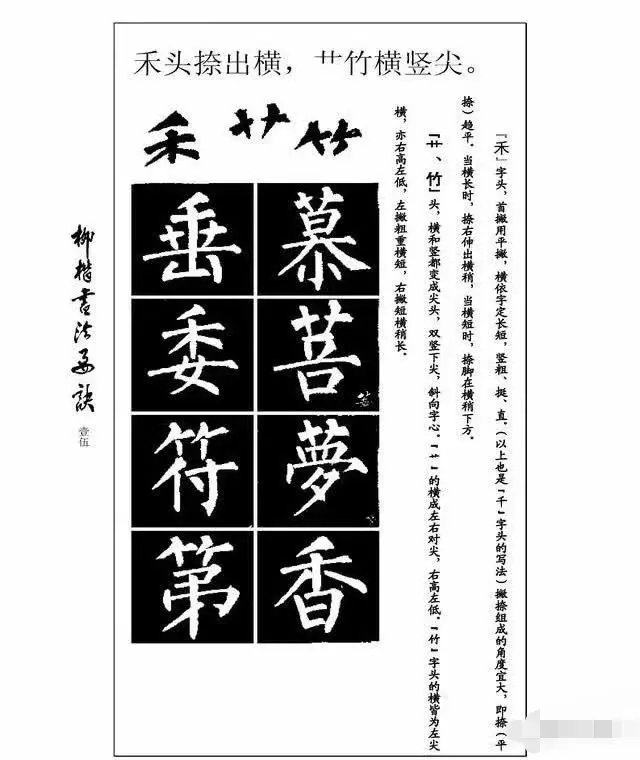 禾头捺出横，艹竹横竖尖。
「禾」字头，首撇用平撇，横依字定长短，竖粗、挺、直。（以上也是「千」字头的写法）撇捺组成的角度宜大，即捺（平
捺）趋平。当横长时，捺右伸出横稍，当横短时，捺脚在横稍下方。
「艹、竹」头，横和竖都变成尖头，双竖下尖，斜向字心。「艹」的横成左右对尖，右高左低。「竹」字头的横皆为左尖
横，亦右高左低，左撇粗重横短，右撇短横稍长。
禾 艹 竹
垂 慕
委 菩
符 夢
第 香
柳楷书法要诀
壹伍